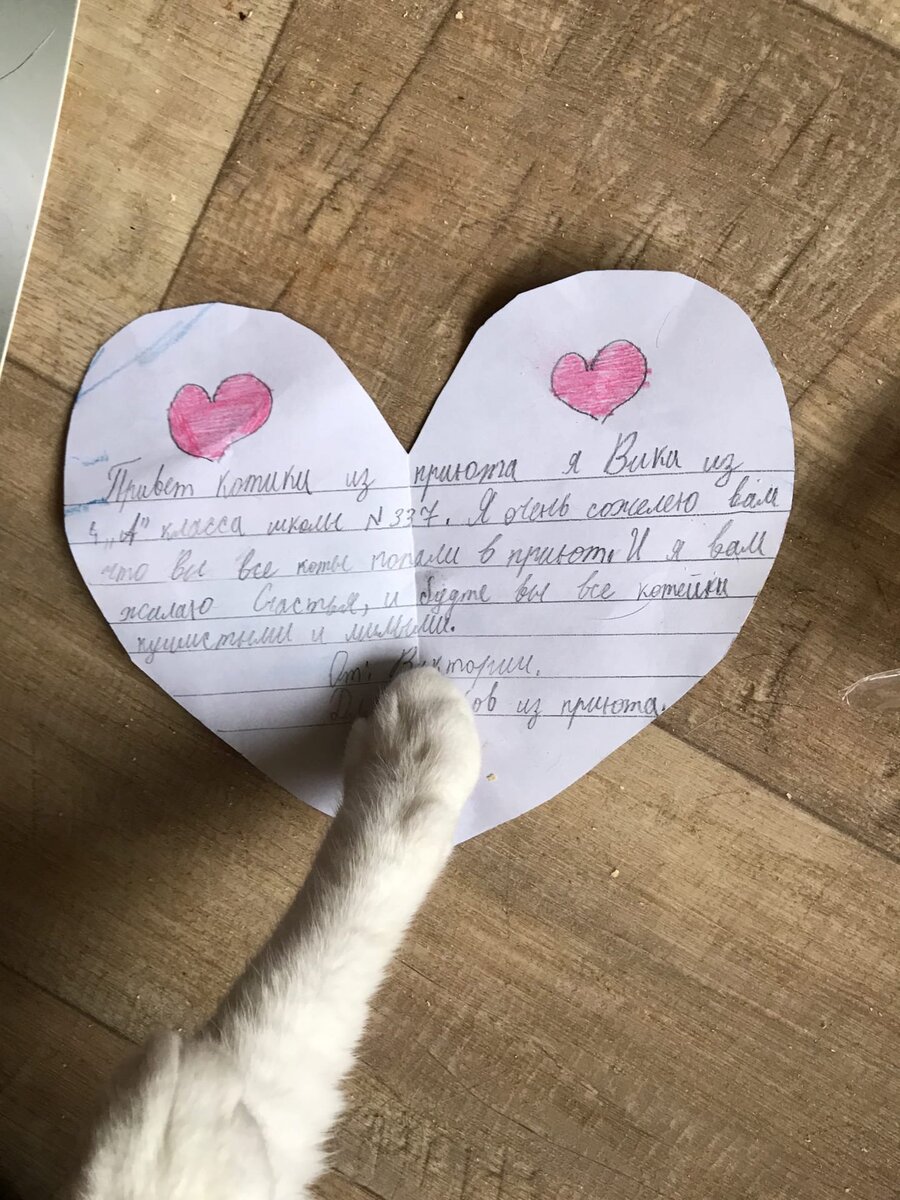 Привет котики из приюта я Вика из
4 „А" класса школы N 337. Я очень сожелею вам
что вы все коты попали в приют. И я вам
жалаю Счастья, и будте вы все котейки
пушистыми и милыми.
От: Виктории.
из приюта.